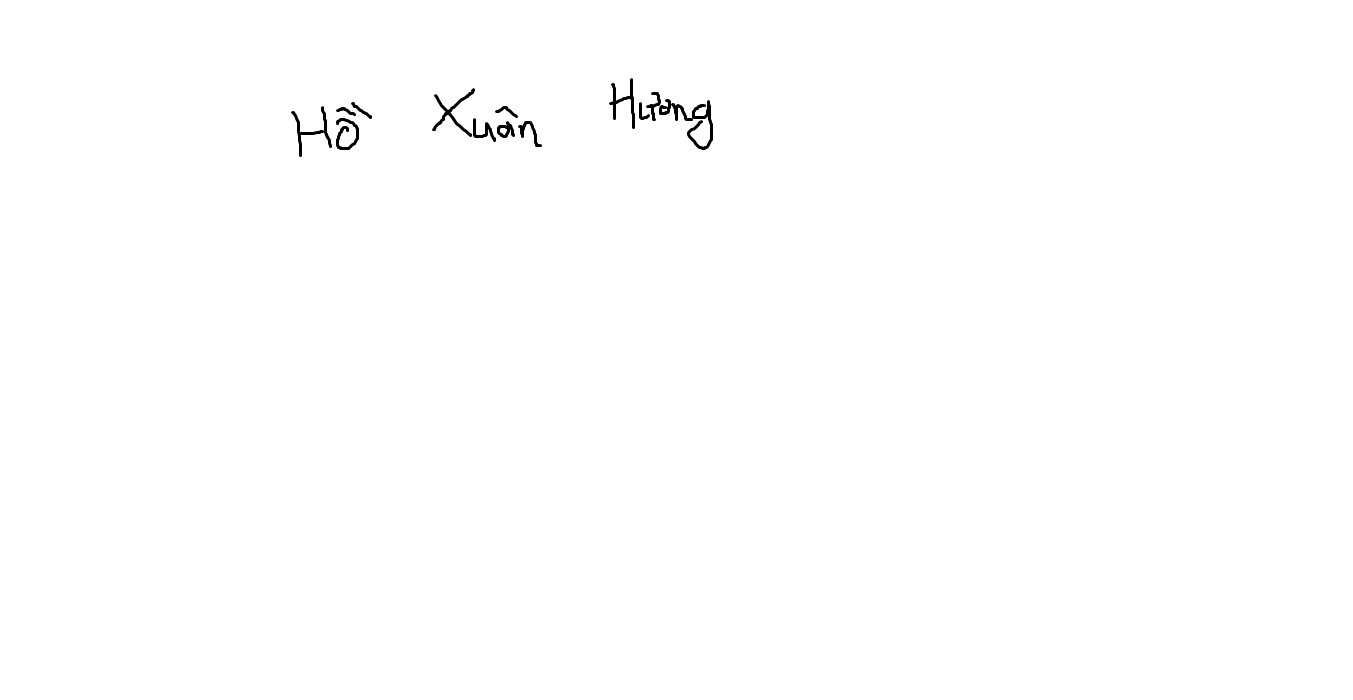 Hồ Xuân Hương